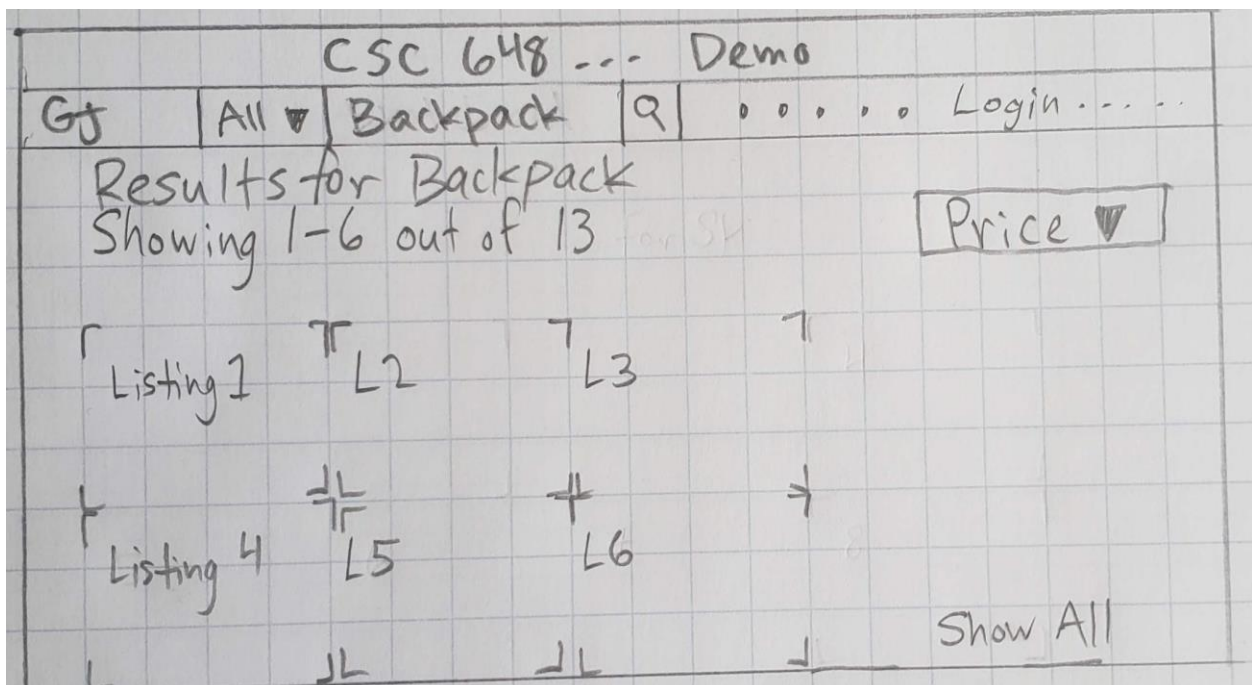 CSC 648 --- Demo
GJ All ▼ Backpack Q • • • • • Login . . . . .
Results for Backpack
Showing 1-6 out of 13
Price ▼
Listing 1 L2 L3
Listing 4 L5 L6
Show All